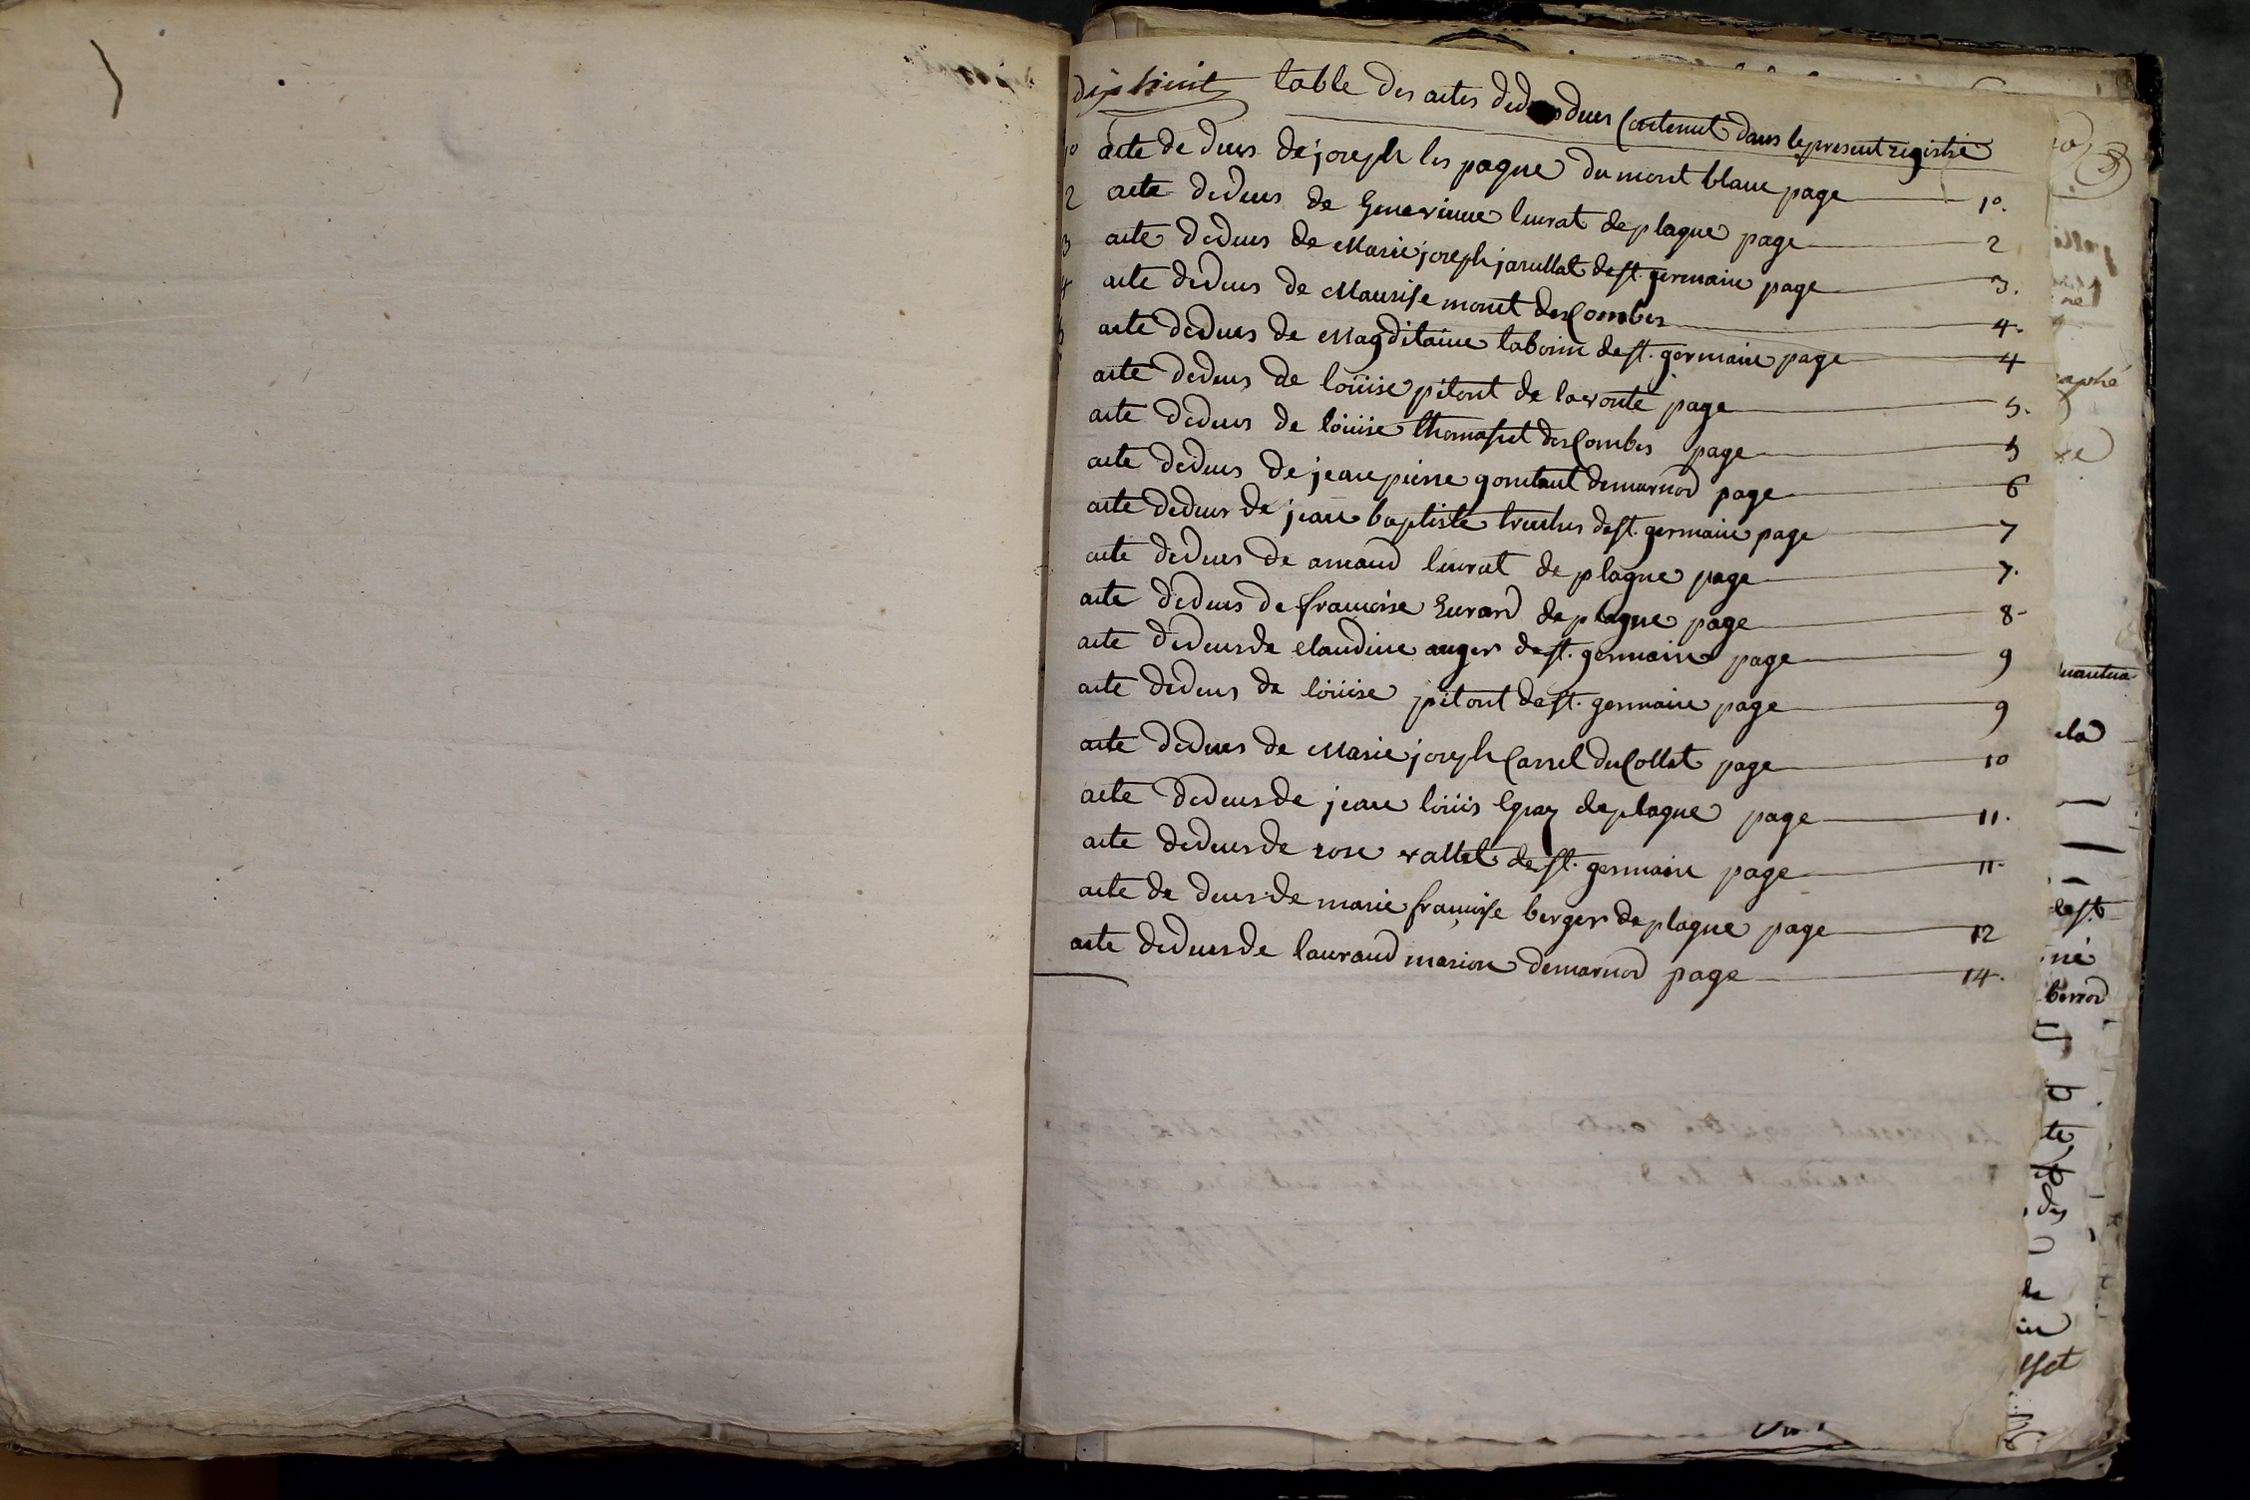 dix huit table des actes de deces Contenut dans le present registre
1º acte de deces de joseph les pagne du mont blanc page 1º.
2 acte de deces de Genevieve leurat de plagne page 2
3 acte de deces de Marie joseph jarullat de st. germain page 3.
4 acte de deces de Maurise monet des Combes 4.
5 acte de deces de Magdelaine laboiri de st. germain page 4
acte de deces de loüise pitont de la voute page 5.
acte de deces de loüise thomasset des Combes page 5
acte de deces de jean pierre gontant de marnod page 6
acte de deces de jean baptiste de st. germain page 7
acte de deces de amand leurat de plagne page 7.
acte de deces de francoise Evrard de plagne page 8
acte de deces de claudine anger de st. germain page 9
acte de deces de loüise pitont de st. germain page 9
acte de deces de Marie joseph Carrel du Collet page 10
acte de deces de jean loüis de plagne page 11.
acte de deces de rose vallet de st. germain page 11.
acte de deces de marie françoise berger de plagne page 12
acte de deces de lauraud marion de marnod page 14.